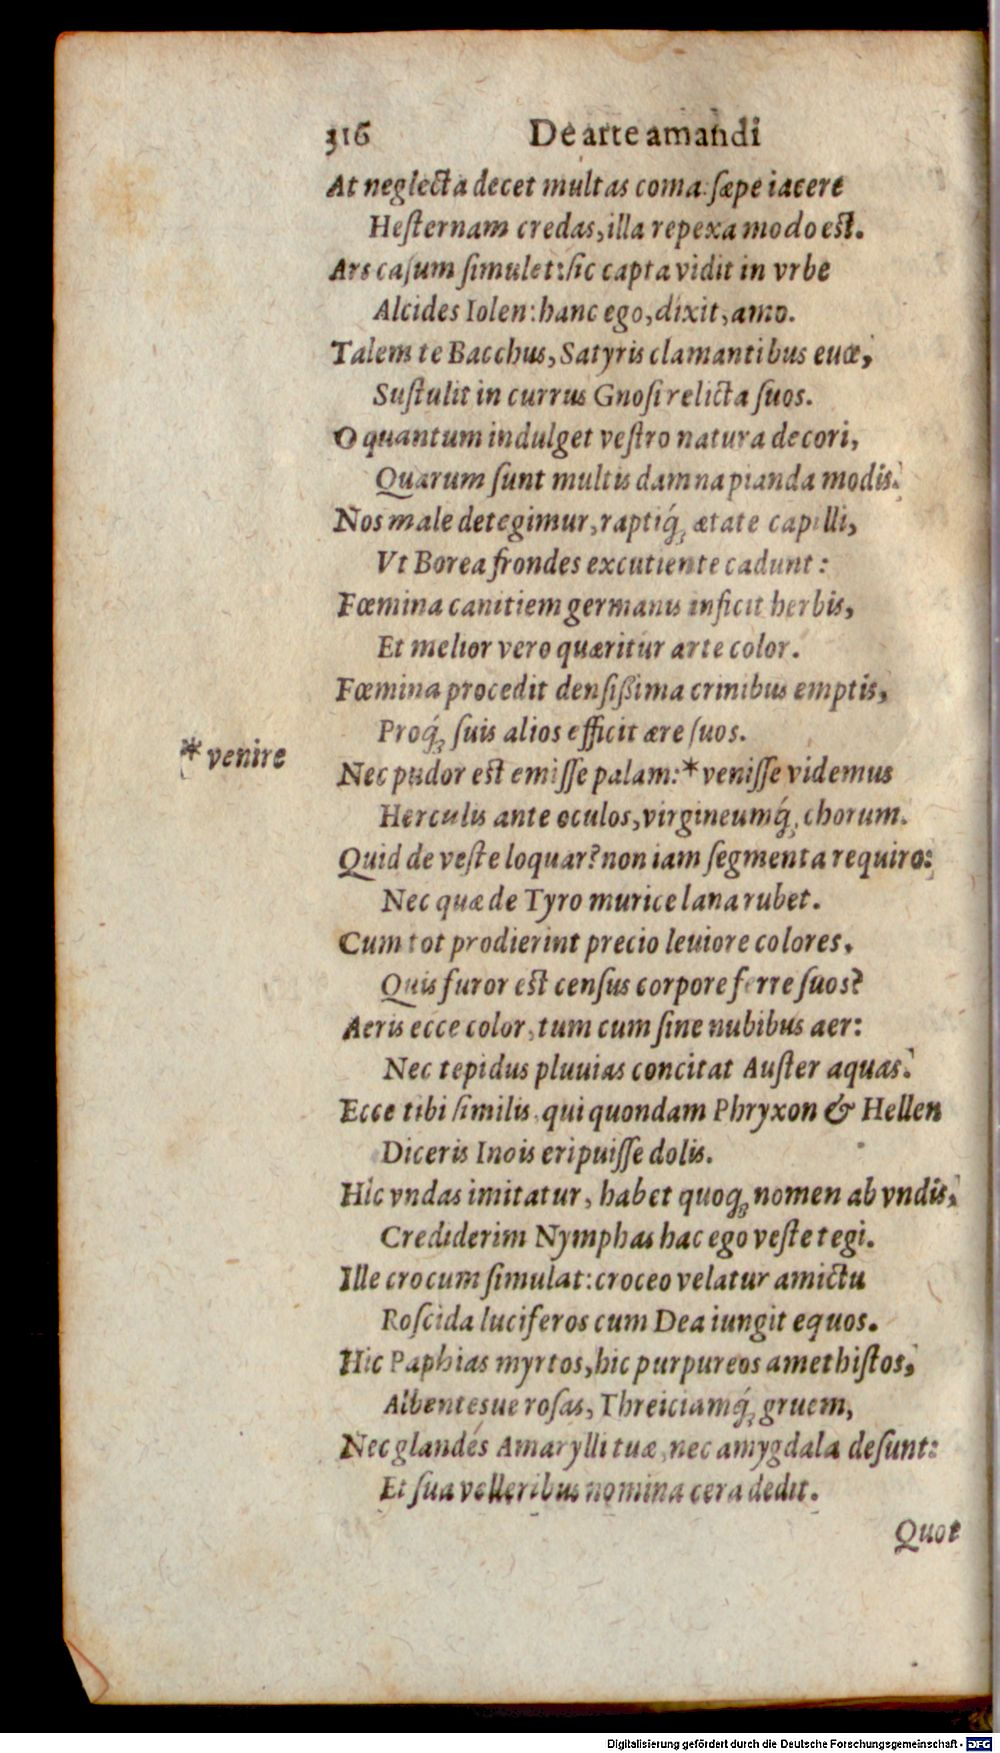 316 De arte amandi
At neglecta decet multas coma: sæpe iacere
Hesternam credas, illa repexa modo est.
Ars casum simulet: sic capta vidit in vrbe
Alcides Iolen: hanc ego, dixit, amo.
Talem te Bacchus, Satyris clamantibus euœ,
Sustulit in currus Gnosi relicta suos.
O quantum indulget vestro natura decori,
Quarum sunt multis damna pianda modis.
Nos male detegimur, raptiq́; ætate capilli,
Vt Borea frondes excutiente cadunt:
Fœmina canitiem germanis inficit herbis,
Et melior vero quæritur arte color.
Fœmina procedit densißima crinibus emptis,
Proq́; suis alios efficit ære suos.
*venire
Nec pudor est emisse palam: *venisse videmus
Herculis ante oculos, virgineumq́; chorum.
Quid de veste loquar? non iam segmenta requiro:
Nec quæ de Tyro murice lana rubet.
Cum tot prodierint precio leuiore colores,
Quis furor est census corpore ferre suos?
Aeris ecce color, tum cum sine nubibus aer:
Nec tepidus pluuias concitat Auster aquas.
Ecce tibi similis, qui quondam Phryxon & Hellen
Diceris Inois eripuisse dolis.
Hic vndas imitatur, habet quoq; nomen ab vndis,
Crediderim Nymphas hac ego veste tegi.
Ille crocum simulat: croceo velatur amictu
Roscida luciferos cum Dea iungit equos.
Hic Paphias myrtos, hic purpureos amethistos,
Albentesue rosas, Threiciamq́; gruem,
Nec glandes Amarylli tuæ, nec amygdala desunt:
Et sua velleribus nomina cera dedit.
Quot
Digitalisierung gefördert durch die Deutsche Forschungsgemeinschaft - DFG